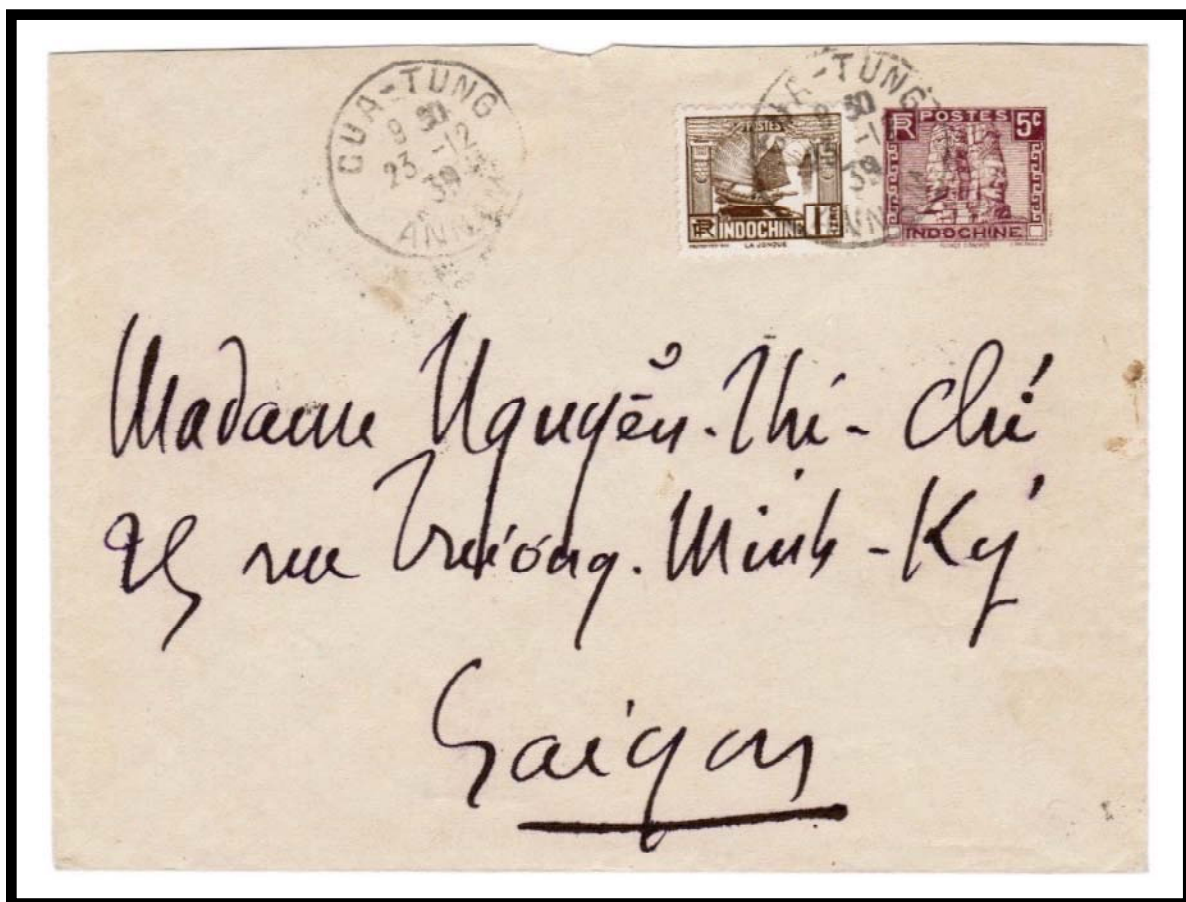 CUA-TUNG
9 30
23-12
39
POSTES
RF INDOCHINE
LA JONQUE
RF POSTES 5c
INDOCHINE
Madame Nguyển-Thi-Chí
rue Trương-Minh-Ký
Saigon